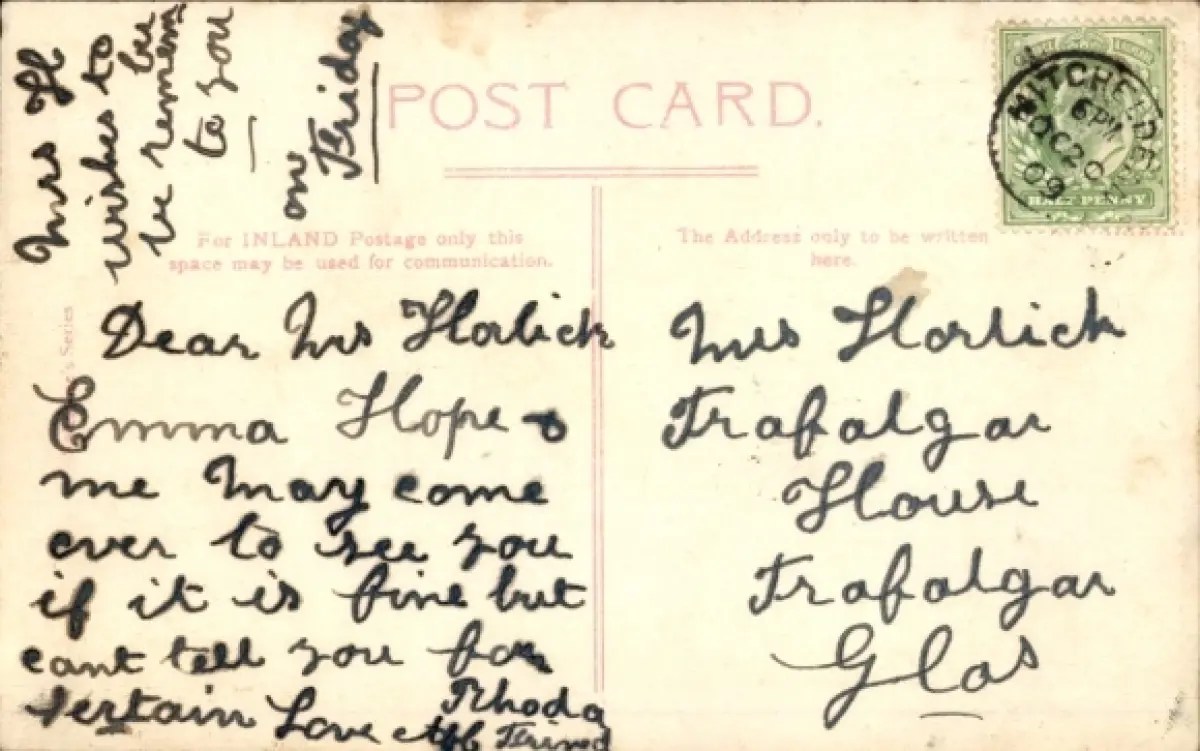 Mrs H
wishes to
be remem
ber
to you
on
Friday
POST CARD.
For INLAND Postage only this
space may be used for communication.
The Address only to be written
here.
MITCHELDEAN
6 PM
OC 20
09
HALF PENNY
Series
Dear Mrs Horlick
Emma Hope &
me may come
over to see you
if it is fine but
cant tell you for
sertain Love
Rhoda
Mrs Horlick
Trafalgar
House
Trafalgar
Glos